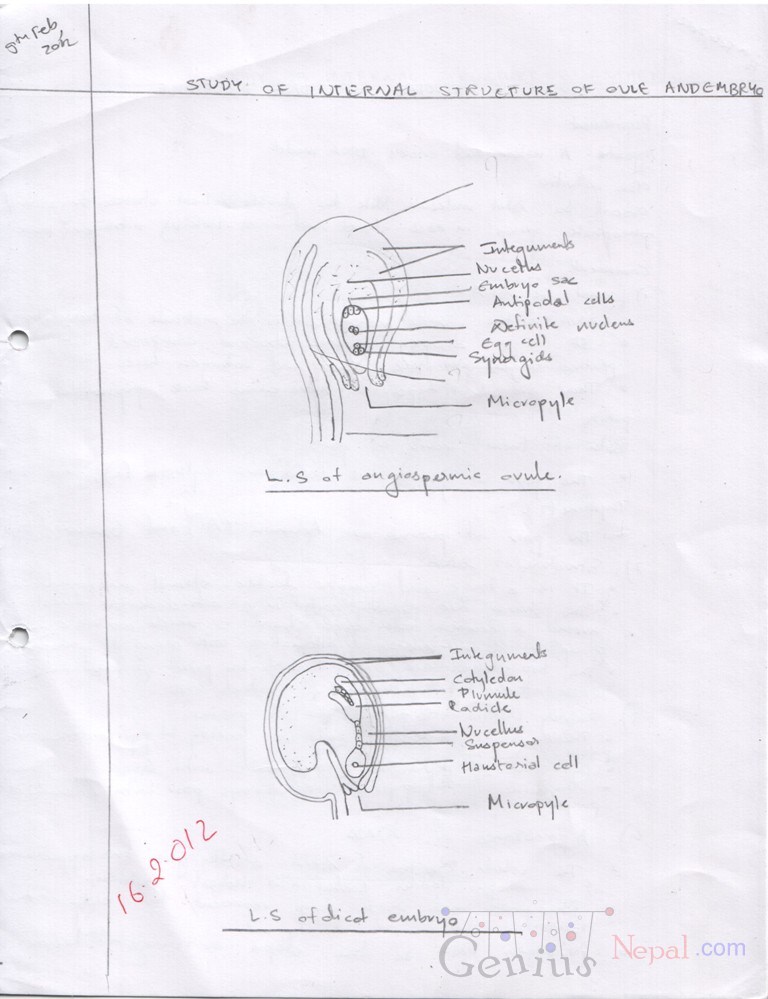 9th Feb,
2012
STUDY OF INTERNAL STRUCTURE OF OULE AND EMBRYO
?
Integuments
Nucellus
Embryo sac
Antipodal cells
Definite nucleus
Egg cell
Synergids
?
Micropyle
L.S of angiospermic ovule.
Integuments
Cotyledon
Plumule
Radicle
Nucellus
Suspensor
Haustorial cell
Micropyle
16.2.012
L.S of dicot embryo
Genius Nepal.com